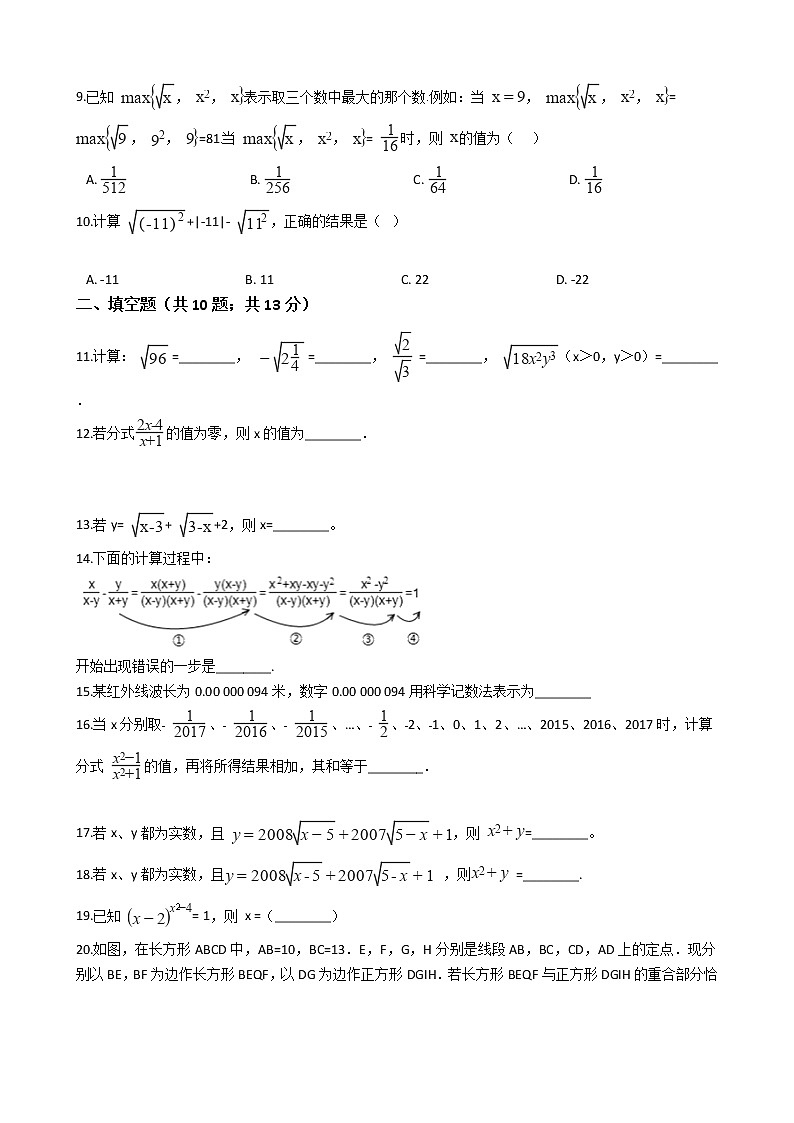 9.已知 max{√x , x², x}表示取三个数中最大的那个数.例如:当 x＝9, max{√x , x², x}=
max{√9 , 9², 9}=81.当 max{√x , x², x}= 1/16 时，则 x的值为（ ）
A. 1/512 B. 1/256 C. 1/64 D. 1/16
10.计算 √(-11)² +|-11|- √11² ，正确的结果是（ ）
A. -11 B. 11 C. 22 D. -22
二、填空题（共 10 题；共 13 分）
11.计算： √96 =________， －√2 1/4 =________， √2/√3 =________， √18x²y³（x＞0，y＞0）=________
.
12.若分式 2x-4/x+1 的值为零，则 x 的值为________.
13.若 y= √x-3+ √3-x+2，则 x=________。
14.下面的计算过程中：
x/x-y - y/x+y = x(x+y)/(x-y)(x+y) - y(x-y)/(x-y)(x+y) = x²+xy-xy-y²/(x-y)(x+y) = x²-y²/(x-y)(x+y) =1
① ② ③ ④
开始出现错误的一步是________.
15.某红外线波长为 0.00 000 094 米，数字 0.00 000 094 用科学记数法表示为________
16.当 x 分别取- 1/2017 、- 1/2016 、- 1/2015 、…、- 1/2 、-2、-1、0、1、2、…、2015、2016、2017 时，计算
分式 x²−1/x²+1 的值，再将所得结果相加，其和等于________.
17.若 x、y 都为实数，且 y＝2008√x－5＋2007√5－x＋1，则 x²＋y=________。
18.若 x、y 都为实数，且y＝2008√x-5＋2007√5-x＋1 ，则x²＋y =________.
19.已知 (x－2)^x²−4= 1，则 x =（________）
20.如图，在长方形 ABCD 中，AB=10，BC=13．E，F，G，H 分别是线段 AB，BC，CD，AD 上的定点．现分
别以 BE，BF 为边作长方形 BEQF，以 DG 为边作正方形 DGIH．若长方形 BEQF 与正方形 DGIH 的重合部分恰